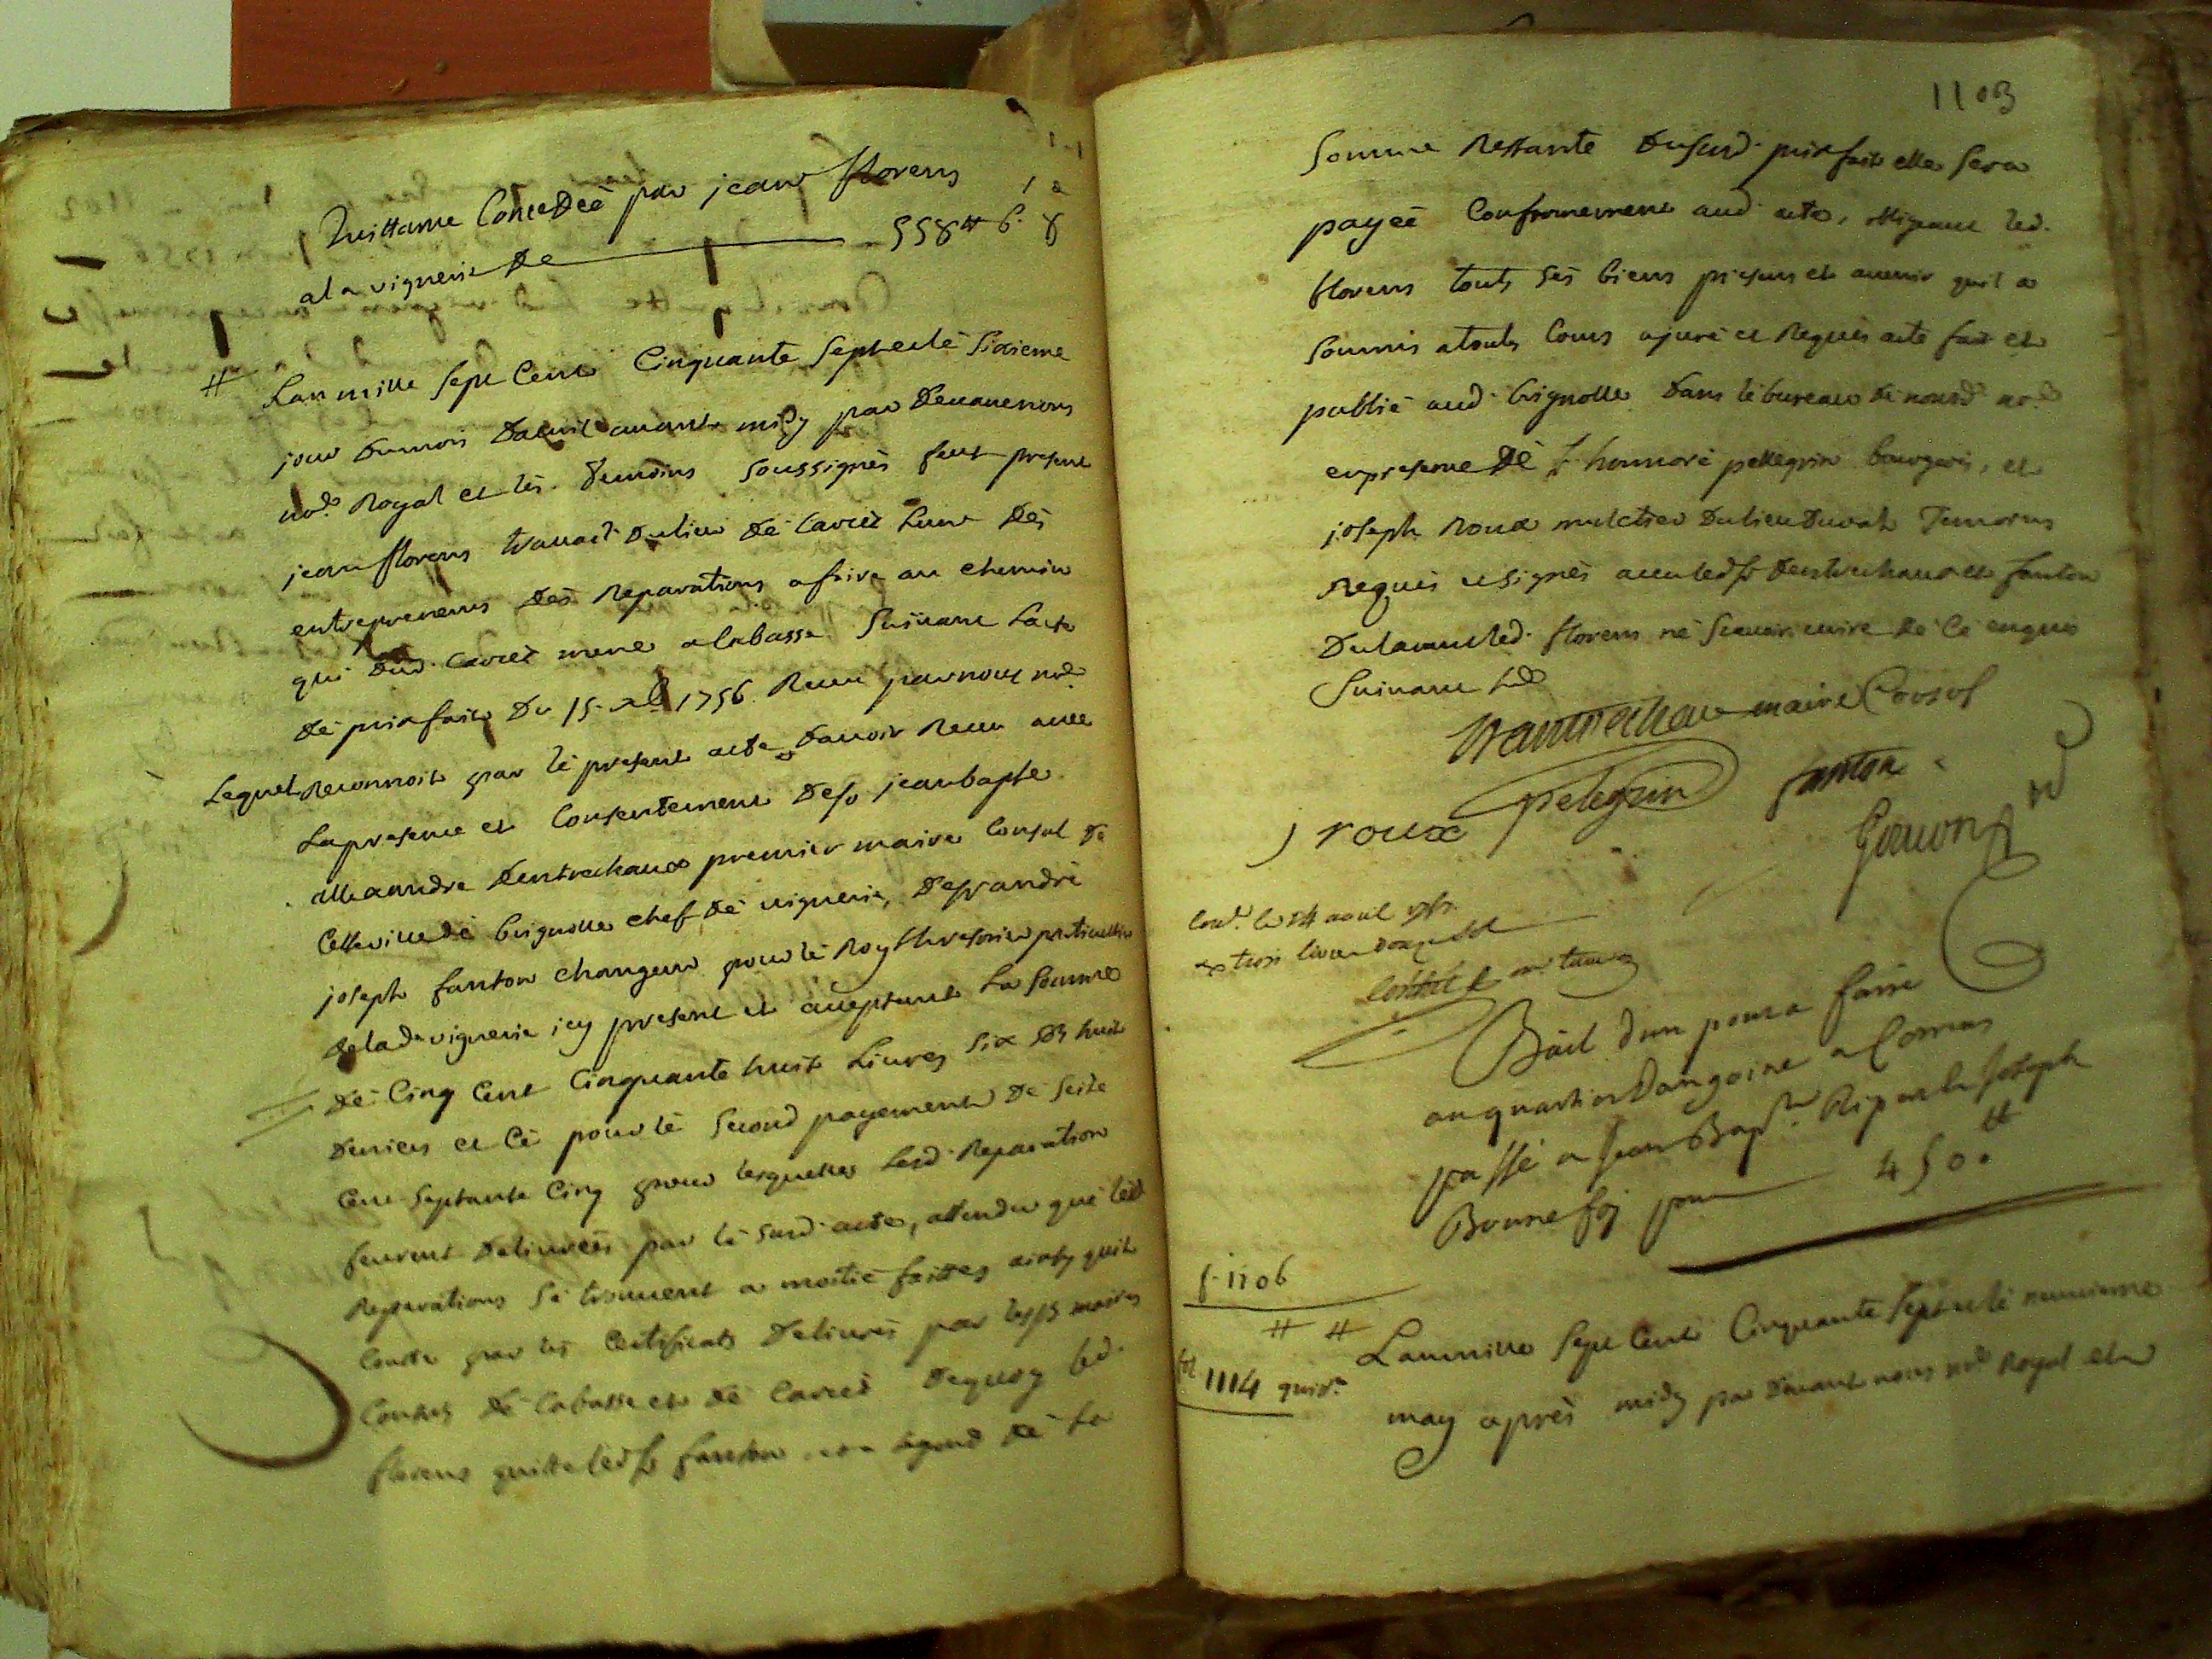 Quittance Concedée par jean florens
a la viguerie de 558# 6 s 8
# Lan mille Sept Cent Cinquante Sept et lé Sixieme
jour du mois daavril avant midy par devant nous
no.re Royal et lés temoins soussignés feut present
jean florens travaid.r du lieu dé Carcès l'un dés
entrepreneurs dés Reparations a faire au chemin
qui dud. Carcès mene a Cabasse Suivant L'acte
dé prix fait du 15 1756 Receu par nous no.re
Lequel Reconnoit par lé present acte davoir Receu avec
La presence et Consentement de s.r jean bap.te
allexandre Dentrechaux premier maire Consul dé
Cette ville dé brignolle chef dé viguerie, de s.r andré
joseph fanton changeur pour lé Roy thresorier particullier
de lad.e viguerie icy present et acceptant La Somme
dé Cinq Cent Cinquante huit Livres Six sols huit
deniers et Cé pour lé Second payement dé Seize
Cent Septante Cinq pour lesquelles Lesd. Reparation
feurent delivrées par lé susd. acte, attendu qué lesd.
Reparations sé trouvent a moitié faittes ainsy quil
Conste par lés Certificats delivrés par les srs maires
Consuls dé Cabasse et dé Carcés dequoy led.
florens quitte led. sr fanton et a légard dé La
1103
Somme Restante du susd. prix fait elle Sera
payéé Conformement aud. acte, obligeant led.
florens touts sés biens presens et avenir quil a
Soumis a touts Cours a juré et Requis acte fait et
publié aud. brignolle dans lé bureau dé nousd. no.re
en presence dé s.r honnoré pellegrin bourgois, et
joseph Roux muletier du lieu du val Temoins
Requis et signés avec led. sr dentrechaux et fanton
led. florens né Scavoir ecrire dé cé enquis
Suivant
Dantrechaux maire Consul
pelegrin fanton
j roux
Goujon no.re
Con.lé le 14 avril 1757
trois livres douze sols
Bail d'un pont a faire
au quartier a Correns
passé a Jean Bap.te Ripert et Joseph
Bonnefoy pour 450.#
f. 1106
# #
fol 1114 quit.ce
Lan mille Sept Cent Cinquante Sept et lé neuvieme
may aprés midy par devant nous no.re Royal et